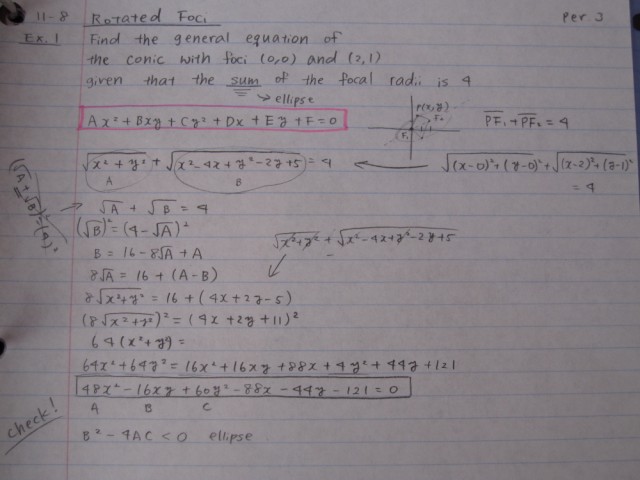 11-8 Rotated Foci Per. 3
Ex. 1 Find the general equation of
the conic with foci (0,0) and (2,1)
given that the sum of the focal radii is 4
→ ellipse
Ax² + Bxy + Cy² + Dx + Ey + F = 0
P(x,y)
F₂
F₁
PF₁ + PF₂ = 4
√(x² + y²) + √(x² - 4x + y² - 2y + 5) = 4 ← √((x-0)² + (y-0)²) + √((x-2)² + (y-1)²)
= 4
A B
(√A + √B)² = (4)²
→ √A + √B = 4
(√B)² = (4 - √A)²
√(x² + y²) + √(x² - 4x + y² - 2y + 5)
B = 16 - 8√A + A
8√A = 16 + (A - B)
8√(x² + y²) = 16 + (4x + 2y - 5)
(8√(x² + y²))² = (4x + 2y + 11)²
64(x² + y²) =
64x² + 64y² = 16x² + 16xy + 88x + 4y² + 44y + 121
48x² - 16xy + 60y² - 88x - 44y - 121 = 0
A B C
check!
B² - 4AC < 0 ellipse